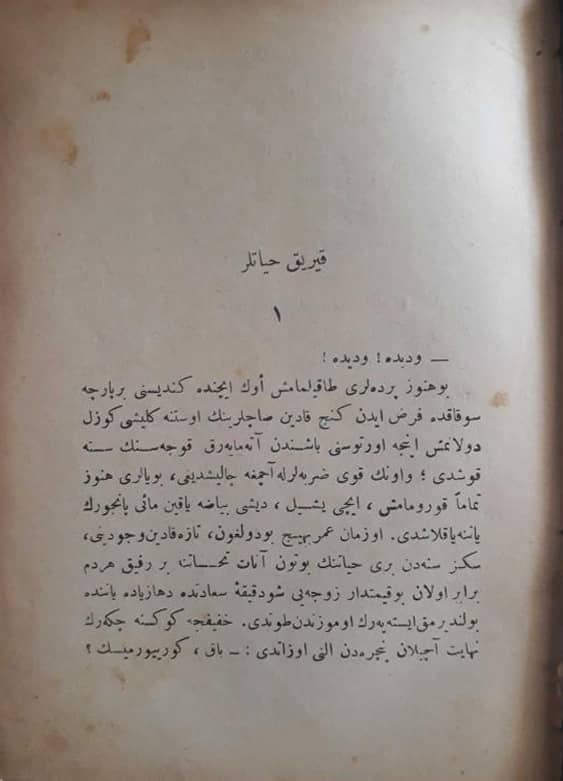 قيريق حياتلر
١
— وديده! وديده!
بوهنوز پرده‌لرى طاقيلمامش أوك ايچنده كنديسنى برپارچه
سوقاقده فرض ايدن كنج قادين صاچلرينك اوستنه كليشى كوزل
دولامش اينجه اورتوسنى باشندن آتمايه‌رق قوجه‌سنك سسنه
قوشدى؛ واونك قوى ضربه‌لرله آچمغه چاليشديغى، بويالرى هنوز
تماماً قورومامش، ايچى يشيل، ديشى بياضه ياقين مائى پانجورك
ياننه‌ياقلاشدى. اوزمان عمر بهيج بودولغون، تازه‌قادين‌وجودينى،
سكز سنه‌دن برى حياتنك بوتون آنات تحساتنه بر رفيق هردم
برابر اولان بوقيمتدار زوجه‌يى شودقيقهٔ سعادتده دهازياده ياننده
بولنديرمق‌ايسته‌يه‌رك اوموزندن‌طوتدى. خفيفجه كوكسنه چكه‌رك
نهايت آچيلان پنجره‌دن النى اوزاتدى: — باق، كوريپورميسك؟